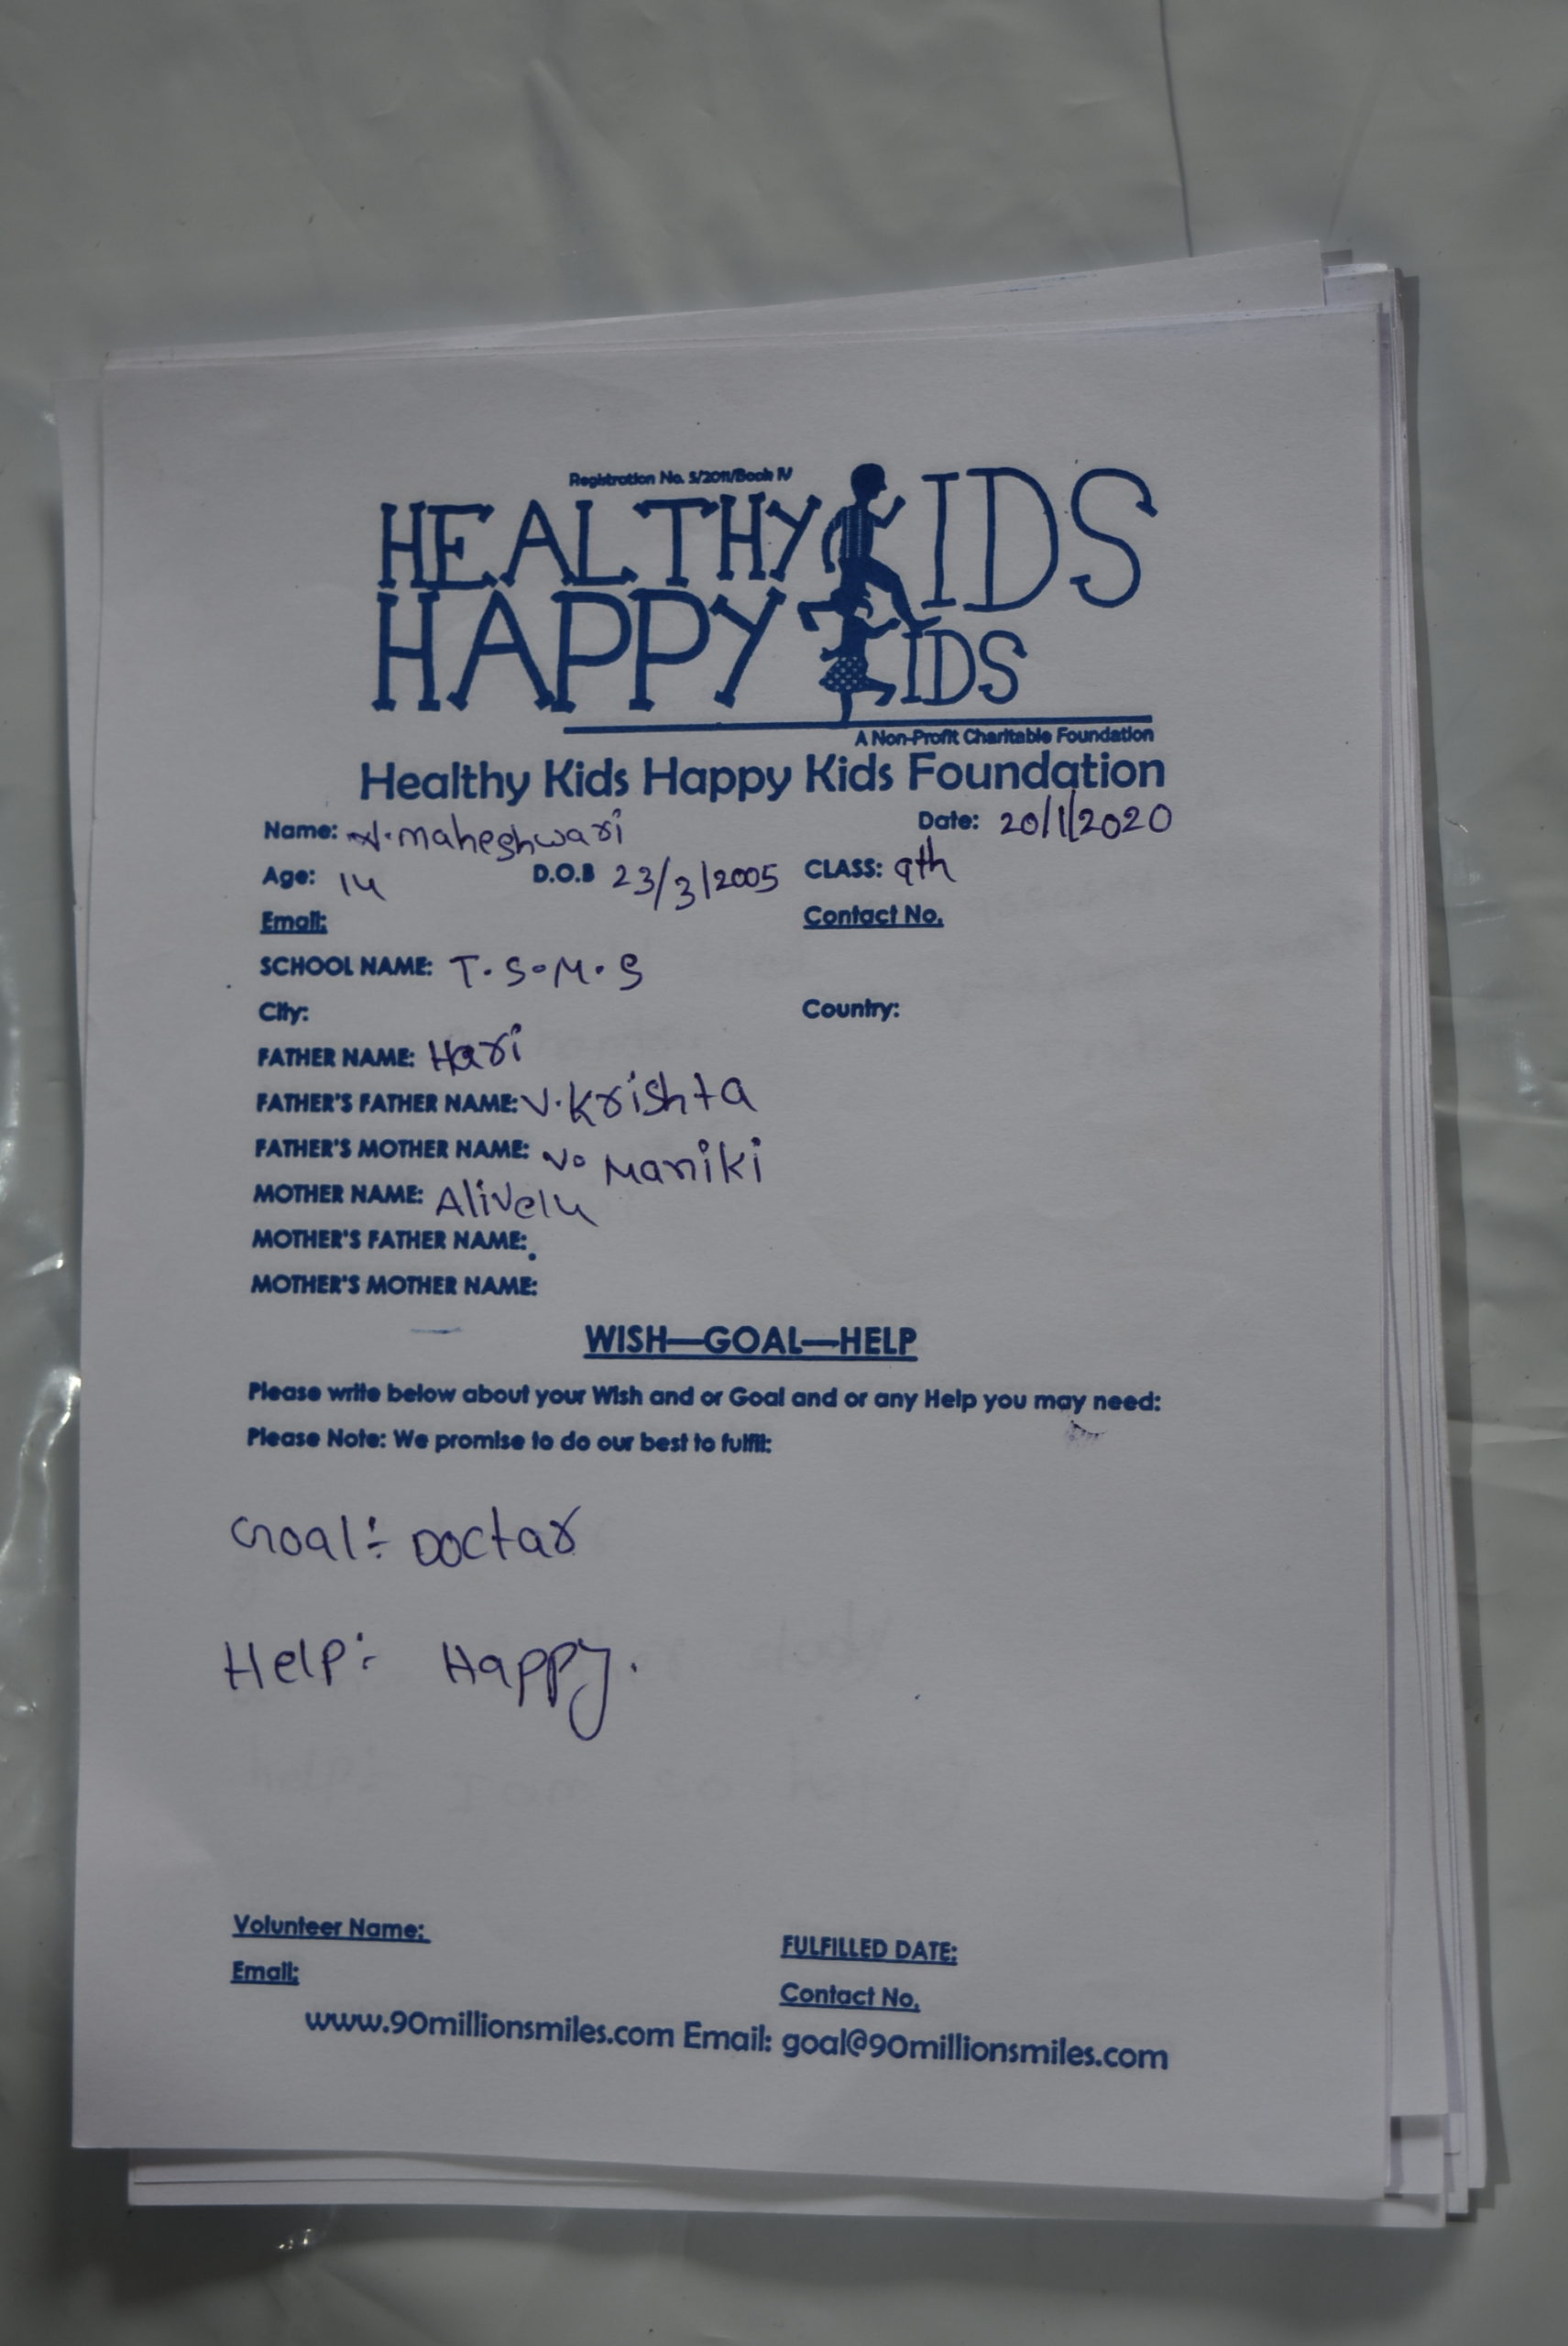 Registration No. 5/2011/Book IV
HEALTHY KIDS
HAPPY KIDS
A Non-Profit Charitable Foundation
Healthy Kids Happy Kids Foundation
Name: maheshwari Date: 20/1/2020
Age: 14 D.O.B 23/3/2005 CLASS: 9th
Email: Contact No.
SCHOOL NAME: T.S.M.S
City: Country:
FATHER NAME: Hari
FATHER'S FATHER NAME: V.Krishta
FATHER'S MOTHER NAME: V. Maniki
MOTHER NAME: Alivelu
MOTHER'S FATHER NAME:
MOTHER'S MOTHER NAME:
WISH—GOAL—HELP
Please write below about your Wish and or Goal and or any Help you may need:
Please Note: We promise to do our best to fulfil:
Goal:- Doctar
Help:- Happy.
Volunteer Name: FULFILLED DATE:
Email: Contact No.
www.90millionsmiles.com Email: goal@90millionsmiles.com